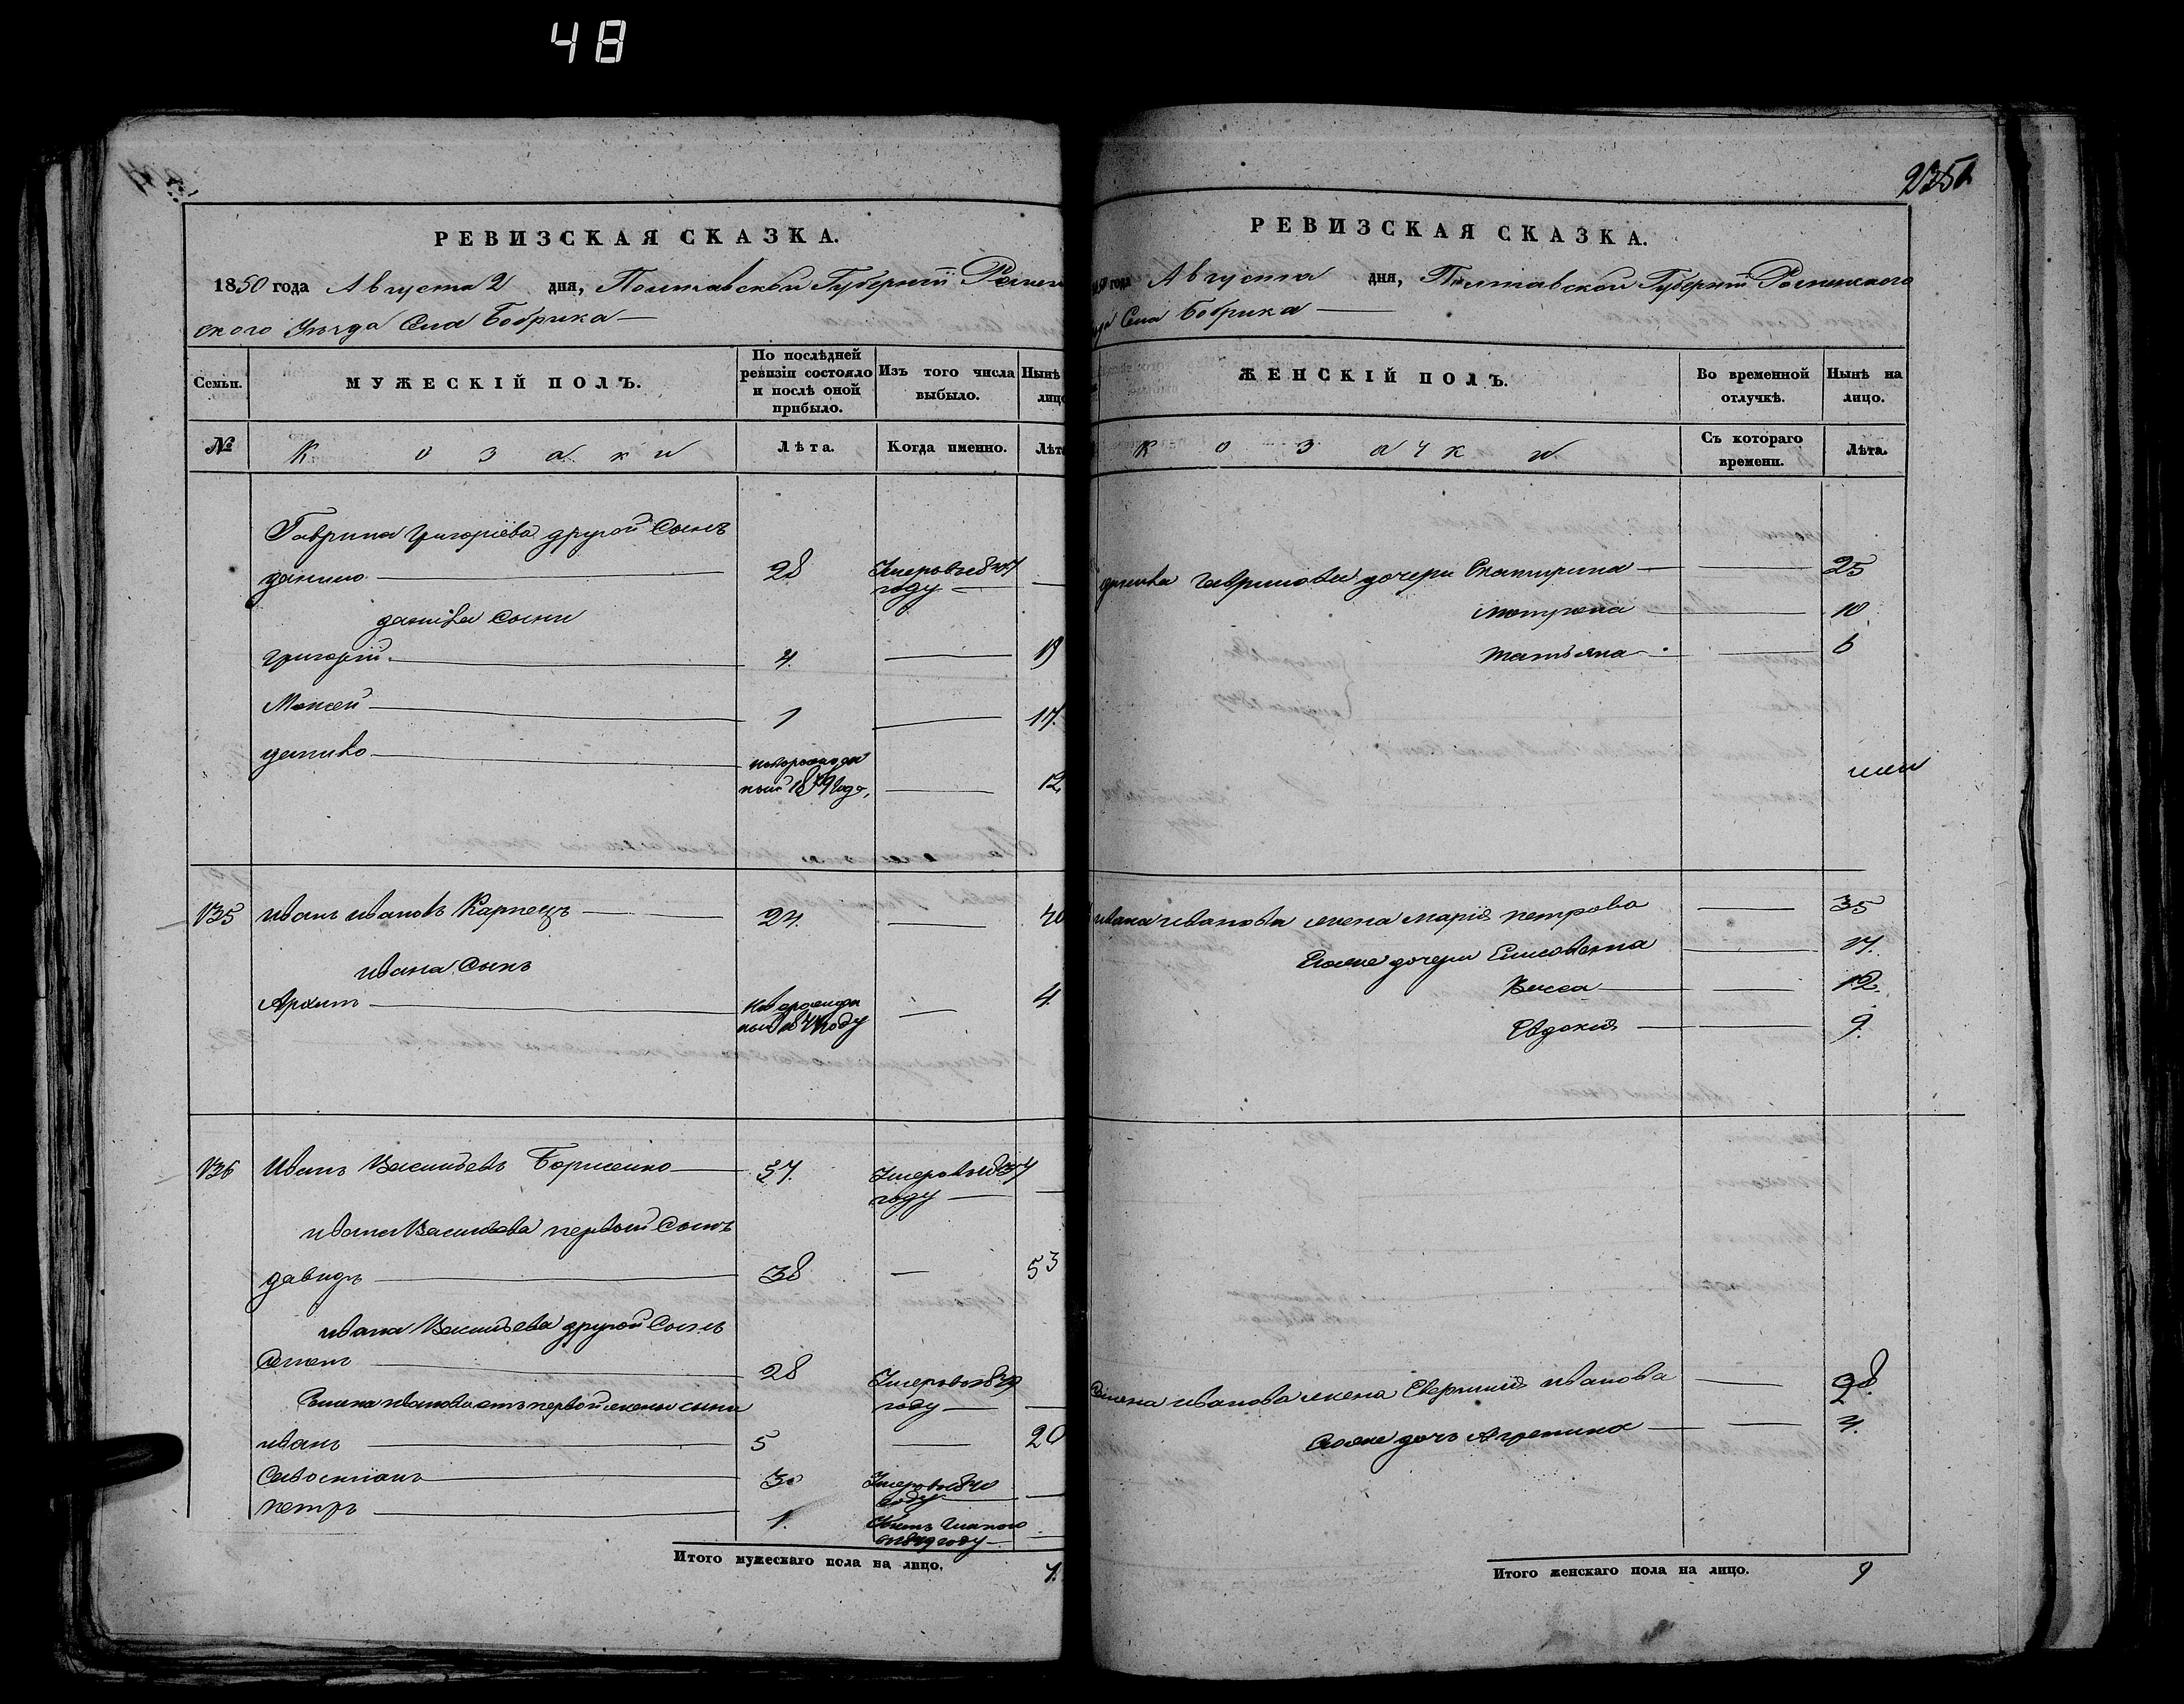 48
РЕВИЗСКАЯ СКАЗКА.
1850 года Августа 2 дня, Полтавской Губернїи
ского Уѣзда Села Бобрика
Семьи. МУЖЕСКІЙ ПОЛЪ. По послѣдней ревизіи состояло и послѣ оной прибыло. Изъ того числа выбыло. Нынѣ лицо
№ Козаки Лѣта. Когда именно. Лѣта
Гаврила Григорїева другой Сынъ
данило 28 Умеръ в году
данила Сыни
Григорїй 4. 19
Мойсей 1 17.
данило новорожден
ный года, 12
135 иванъ ивановъ Карпецъ 24. 40
ивана Сынъ
Архипъ новорожден
ный году 4
136 Иванъ Васильевъ Борисенко 57. Умеръ в году
ивана Васильева первый Сынъ
давидъ 38 53
ивана Васильева другой Сынъ
Семенъ 28 Умеръ году
Семена иванова отъ первой жены сыни
иванъ 5 20
Севостїанъ 3 Умеръ году
петръ 1. году
Итого мужескаго пола на лицо. 7.
235
РЕВИЗСКАЯ СКАЗКА.
года Августа дня, Полтавской Губернїи Роменского
Села Бобрика
ЖЕНСКІЙ ПОЛЪ. Во временной отлучкѣ. Нынѣ на лицо.
Козачки Съ котораго времени. Лѣта.
гаврилова дочери Екатирина 25
мотрона 10
татьяна 6
ивана иванова жена марїя петрова 35
Егоже дочери Елисовета 17.
Васса 12.
Евдокия 9.
Семена иванова жена иванова 28.
Егоже дочь Агрепина 4.
Итого женскаго пола на лицо. 9